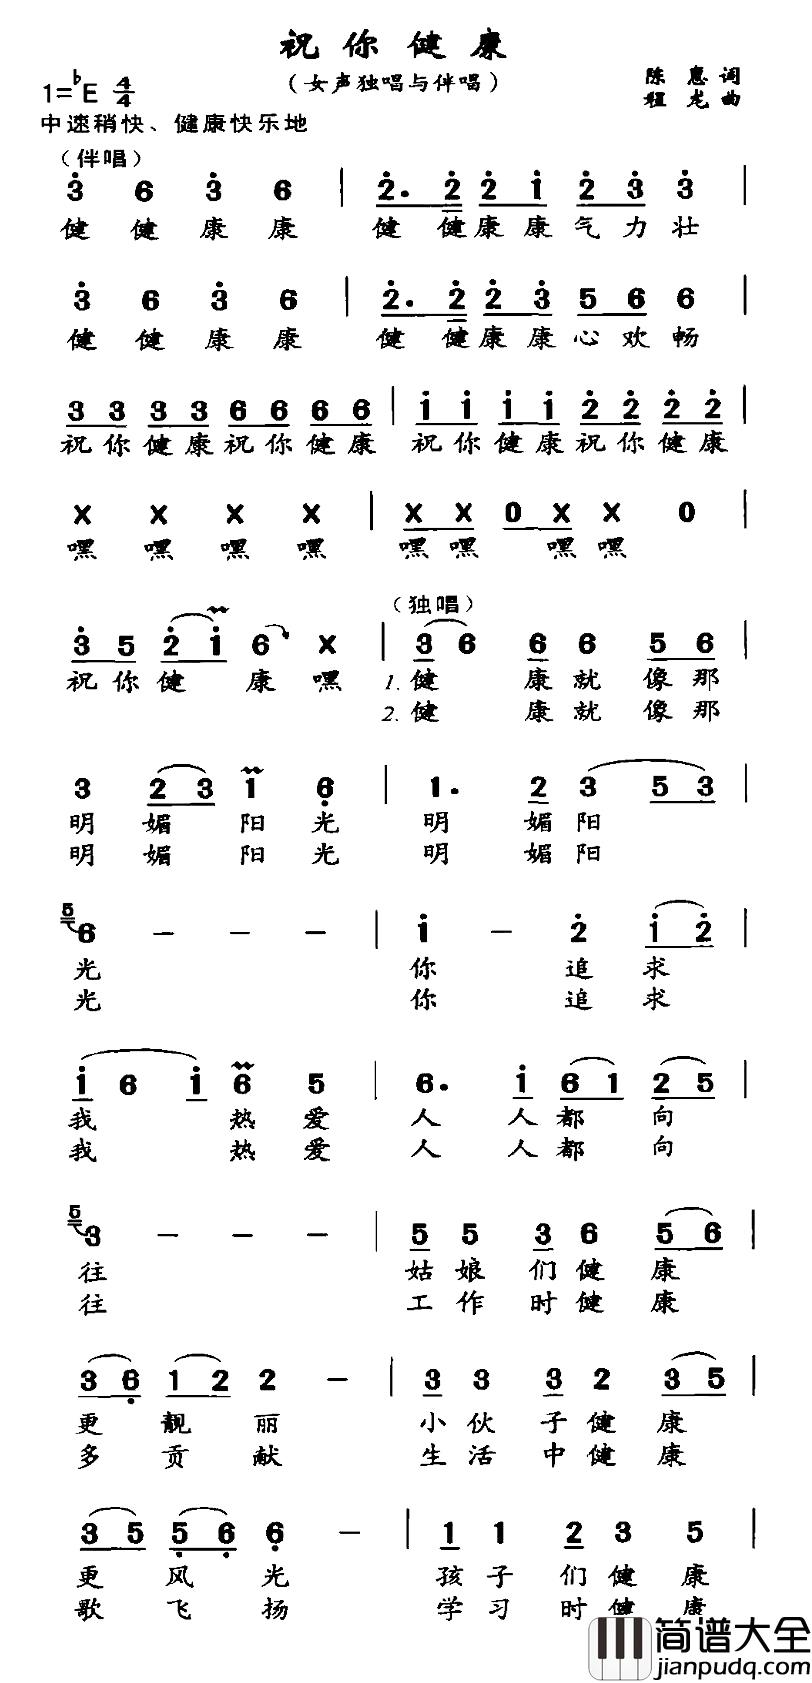 祝你健康
（女声独唱与伴唱）
陈惠词
程龙曲
1=♭E 4/4
中速稍快、健康快乐地
（伴唱）
3 6 3 6 | 2. 2 2 1 2 3 3 |
健 健 康 康 健 健 康 康 气 力 壮
3 6 3 6 | 2. 2 2 3 5 6 6 |
健 健 康 康 健 健 康 康 心 欢 畅
3 3 3 3 6 6 6 6 | 1 1 1 1 2 2 2 2 |
祝 你 健 康 祝 你 健 康 祝 你 健 康 祝 你 健 康
X X X X | X X 0 X X 0 |
嘿 嘿 嘿 嘿 嘿 嘿 嘿 嘿
（独唱）
3 5 2 1 6 X | 3 6 6 6 5 6 |
祝 你 健 康 嘿 1. 健 康 就 像 那
2. 健 康 就 像 那
3 2 3 1 6 | 1. 2 3 5 3 |
明 媚 阳 光 明 媚 阳
明 媚 阳 光 明 媚 阳
5 6 － － － | 1 － 2 1 2 |
光 你 追 求
光 你 追 求
1 6 1 6 5 | 6. 1 6 1 2 5 |
我 热 爱 人 人 都 向
我 热 爱 人 人 都 向
5 3 － － － | 5 5 3 6 5 6 |
往 姑 娘 们 健 康
往 工 作 时 健 康
3 6 1 2 2 － | 3 3 3 2 3 5 |
更 靓 丽 小 伙 子 健 康
多 贡 献 生 活 中 健 康
3 5 5 6 6 － | 1 1 2 3 5 |
更 风 光 孩 子 们 健 康
歌 飞 扬 学 习 时 健 康
简谱大全
jianpudq.com